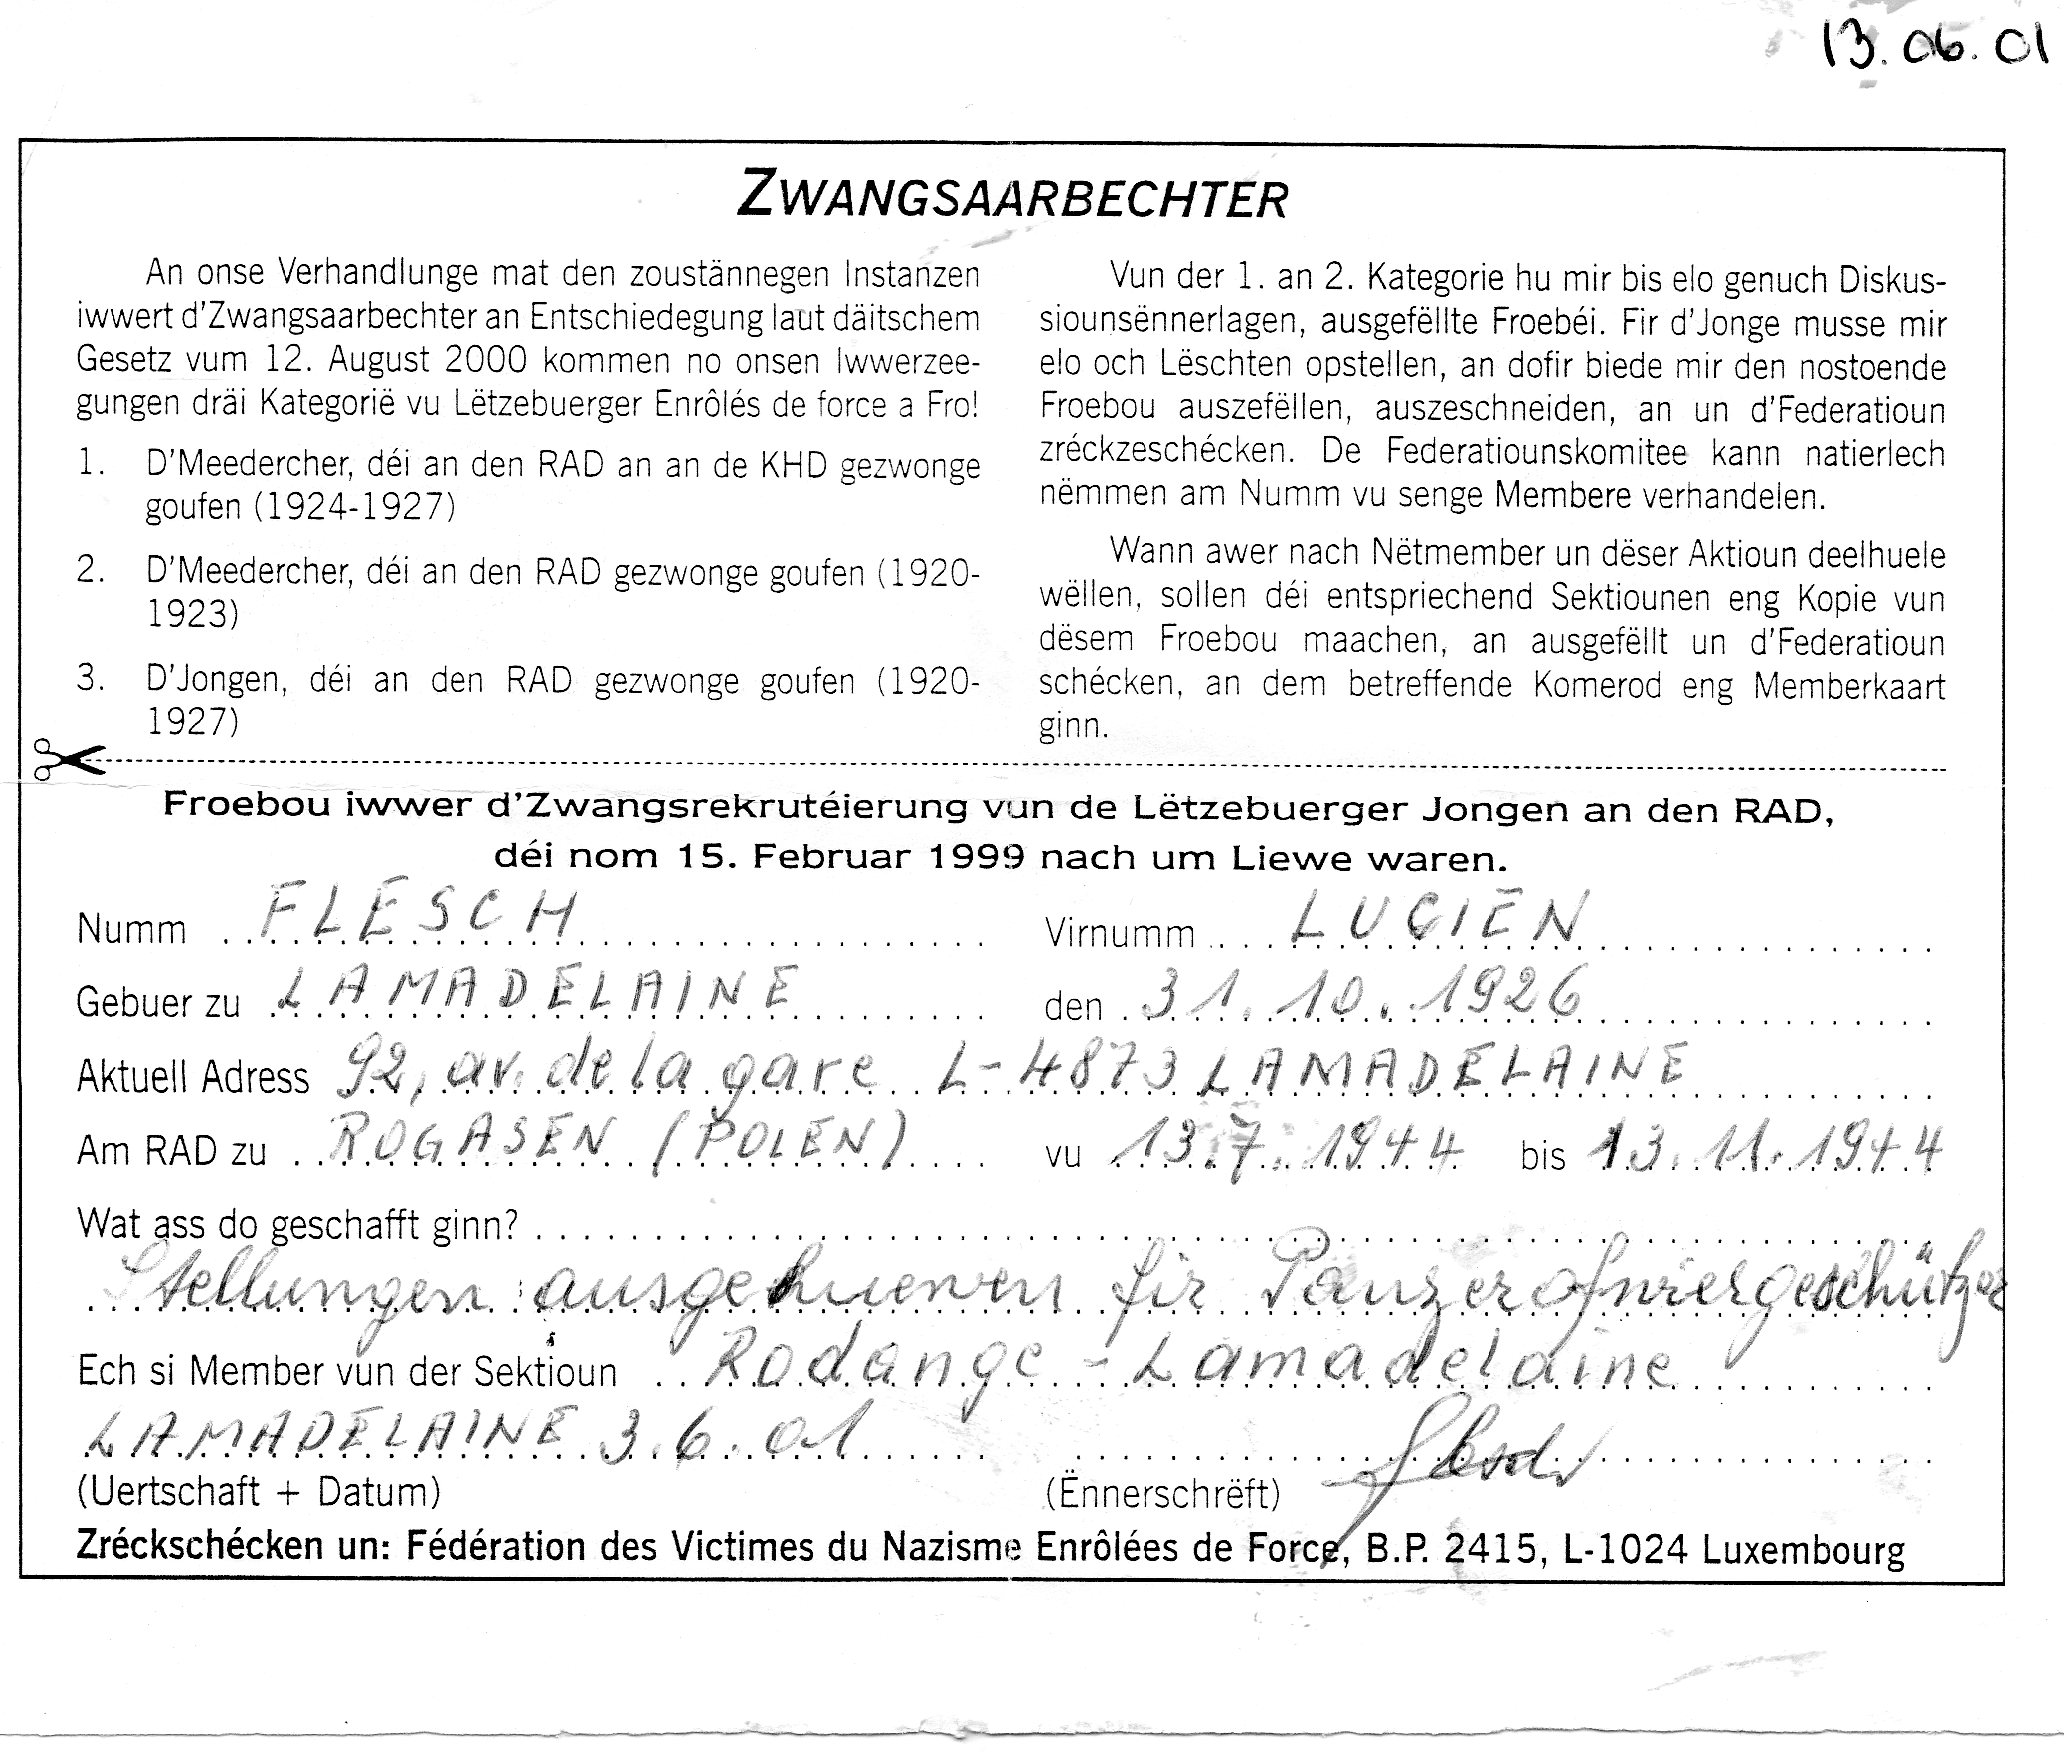 13.06.01
ZWANGSAARBECHTER
An onse Verhandlunge mat den zoustännegen Instanzen
iwwert d'Zwangsaarbechter an Entschiedegung laut däitschem
Gesetz vum 12. August 2000 kommen no onsen Iwwerzee-
gungen dräi Kategorië vu Lëtzebuerger Enrôlés de force a Fro!
1. D'Meedercher, déi an den RAD an an de KHD gezwonge
goufen (1924-1927)
2. D'Meedercher, déi an den RAD gezwonge goufen (1920-
1923)
3. D'Jongen, déi an den RAD gezwonge goufen (1920-
1927)
Vun der 1. an 2. Kategorie hu mir bis elo genuch Diskus-
siounsënnerlagen, ausgefëllte Froebéi. Fir d'Jonge musse mir
elo och Lëschten opstellen, an dofir biede mir den nostoende
Froebou auszefëllen, auszeschneiden, an un d'Federatioun
zréckzeschécken. De Federatiounskomitee kann natierlech
nëmmen am Numm vu senge Membere verhandelen.
Wann awer nach Nëtmember un dëser Aktioun deelhuele
wëllen, sollen déi entspriechend Sektiounen eng Kopie vun
dësem Froebou maachen, an ausgefëllt un d'Federatioun
schécken, an dem betreffende Komerod eng Memberkaart
ginn.
Froebou iwwer d'Zwangsrekrutéierung vun de Lëtzebuerger Jongen an den RAD,
déi nom 15. Februar 1999 nach um Liewe waren.
Numm FLESCH Virnumm LUCIEN
Gebuer zu LAMADELAINE den 31.10.1926
Aktuell Adress 92, av. de la gare L-4873 LAMADELAINE
Am RAD zu ROGASEN (POLEN) vu 13.7.1944 bis 13.11.1944
Wat ass do geschafft ginn?
Stellungen ausgehuewen fir Panzerofwiergeschützer
Ech si Member vun der Sektioun Rodange-Lamadelaine
LAMADELAINE 3.6.01
(Uertschaft + Datum) (Ënnerschrëft) Flesch
Zréckschécken un: Fédération des Victimes du Nazisme Enrôlées de Force, B.P. 2415, L-1024 Luxembourg